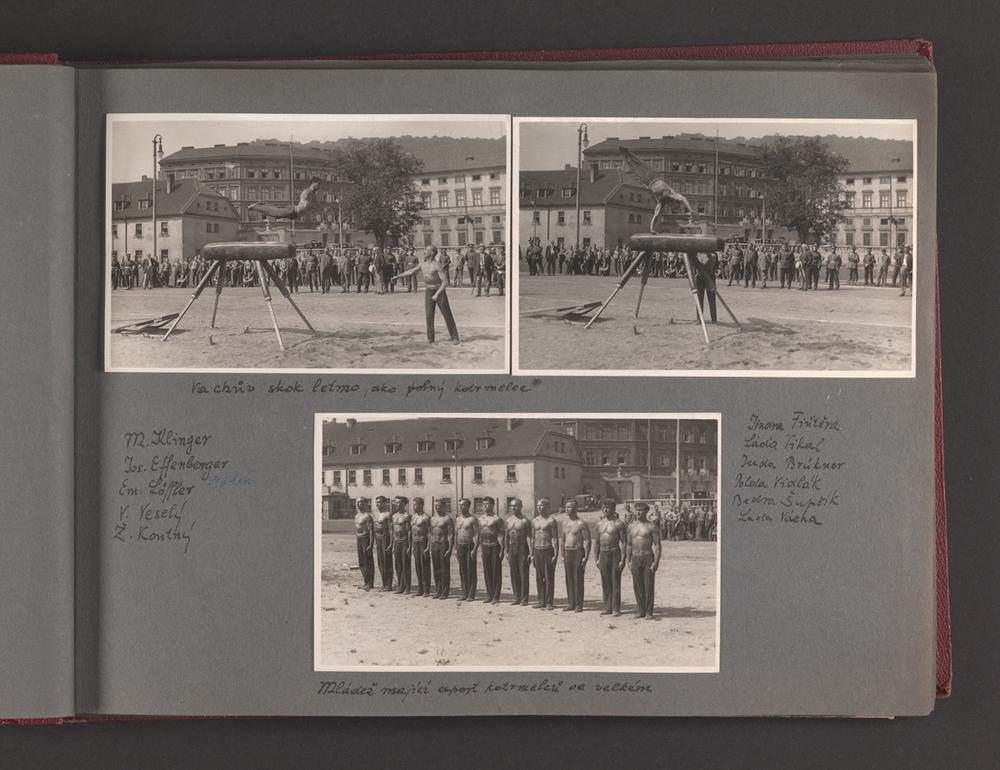 Vachův skok letmo, ako polný kotrmelec"
M. Klinger
Jos. Effenberger
Em. Löffler
V. Veselý
Ž. Koutný
Láďa Tikal
Jenda Brükner
Polda Vidlák
Bedra Šupčík
Láďa Vácha
Mládež mající export kotrmelců ve velkém